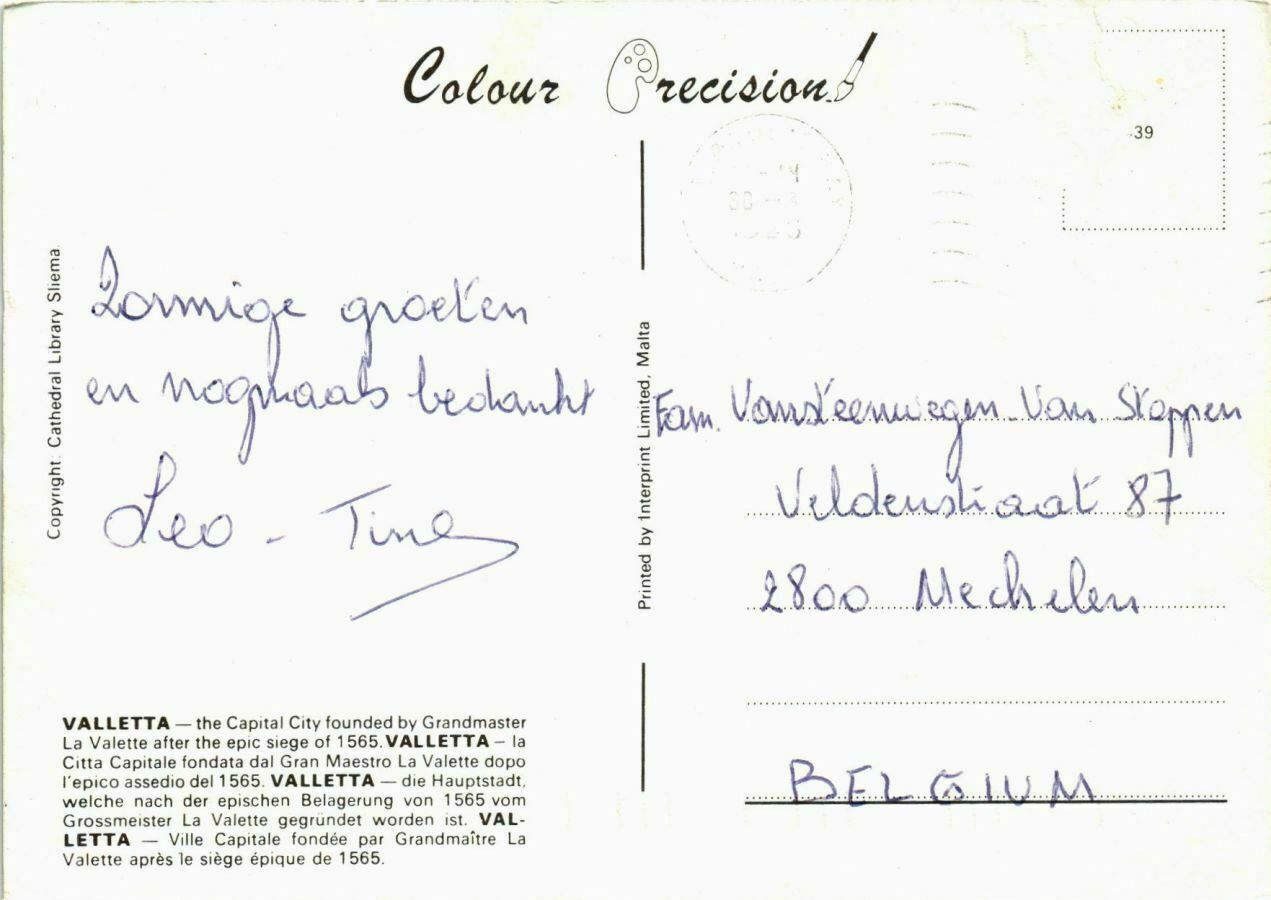 Colour Precision
39
Copyright: Cathedral Library Sliema.
Zonnige groeten
en nogmaals bedankt
Leo - Tine
Printed by Interprint Limited, Malta
Fam. Vansteenwegen-Van Stappen
Veldenstraat 87
2800 Mechelen
BELGIUM
VALLETTA — the Capital City founded by Grandmaster
La Valette after the epic siege of 1565. VALLETTA – la
Citta Capitale fondata dal Gran Maestro La Valette dopo
l'epico assedio del 1565. VALLETTA — die Hauptstadt,
welche nach der epischen Belagerung von 1565 vom
Grossmeister La Valette gegründet worden ist. VAL-
LETTA — Ville Capitale fondée par Grandmaître La
Valette après le siège épique de 1565.